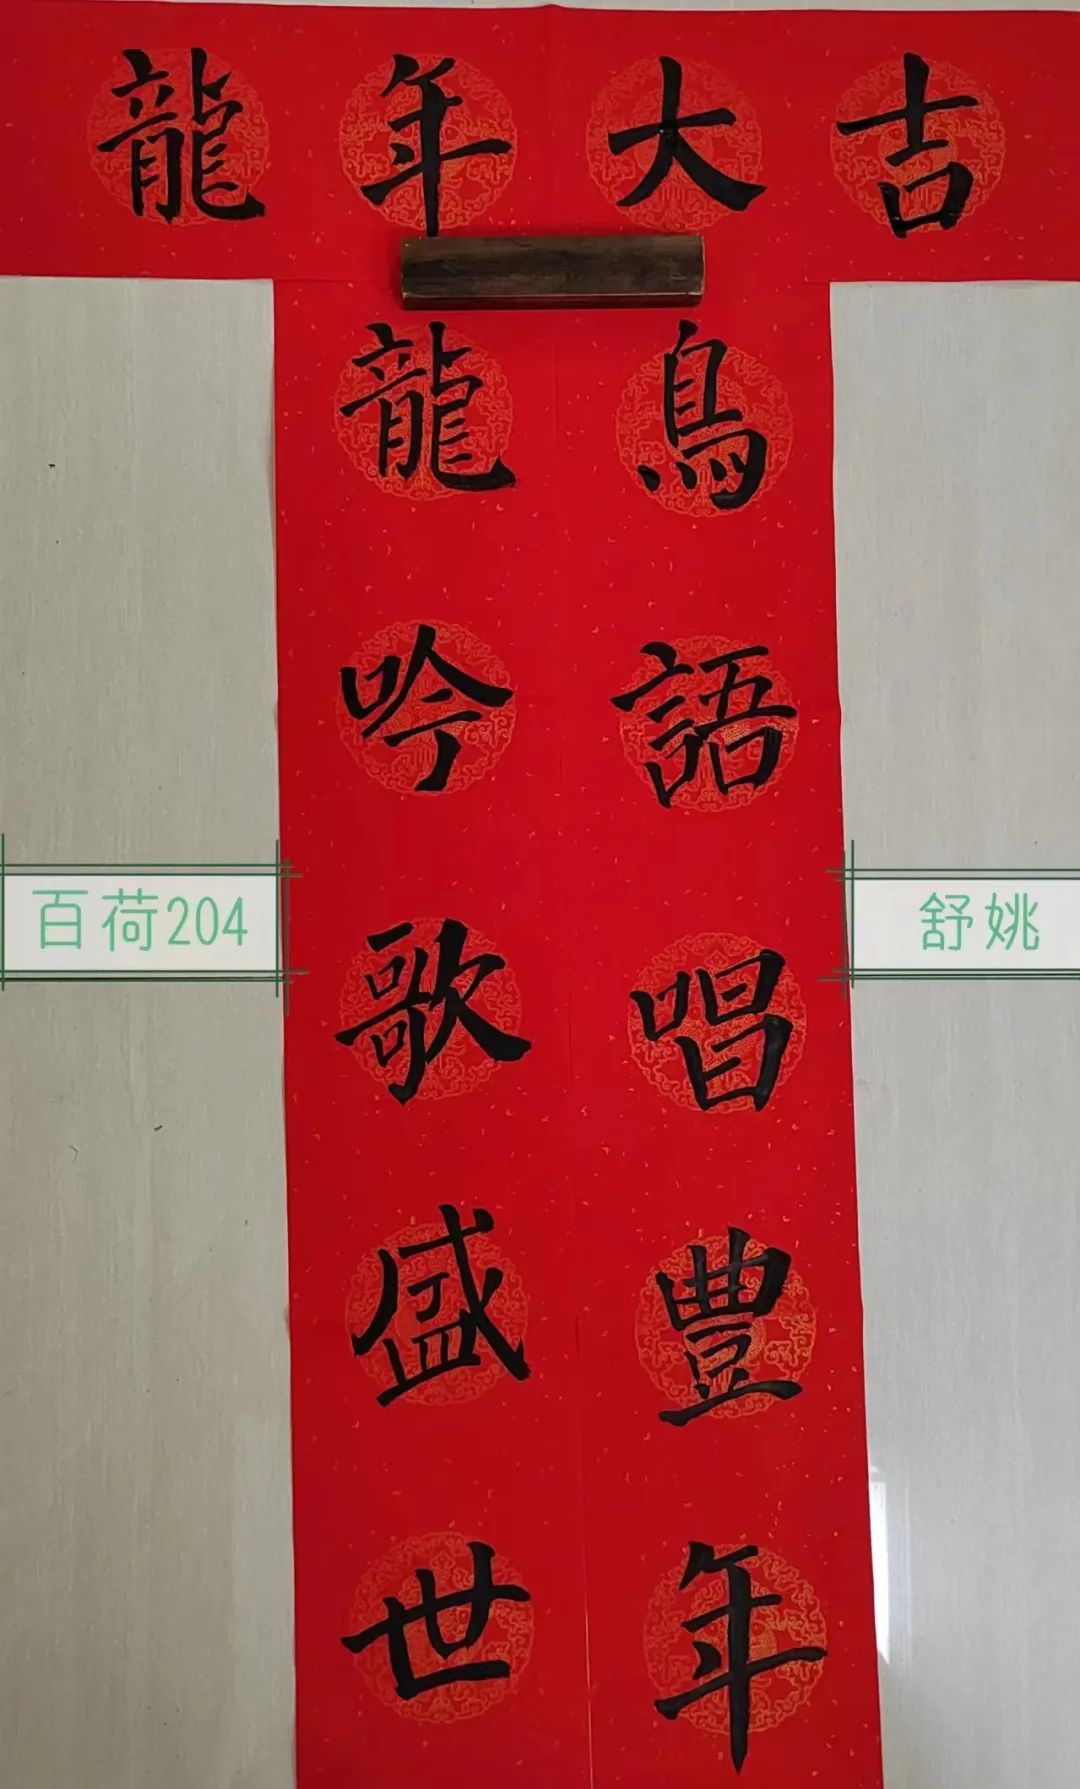 龍年大吉
龍吟歌盛世
鳥語唱豐年
百荷204
舒姚